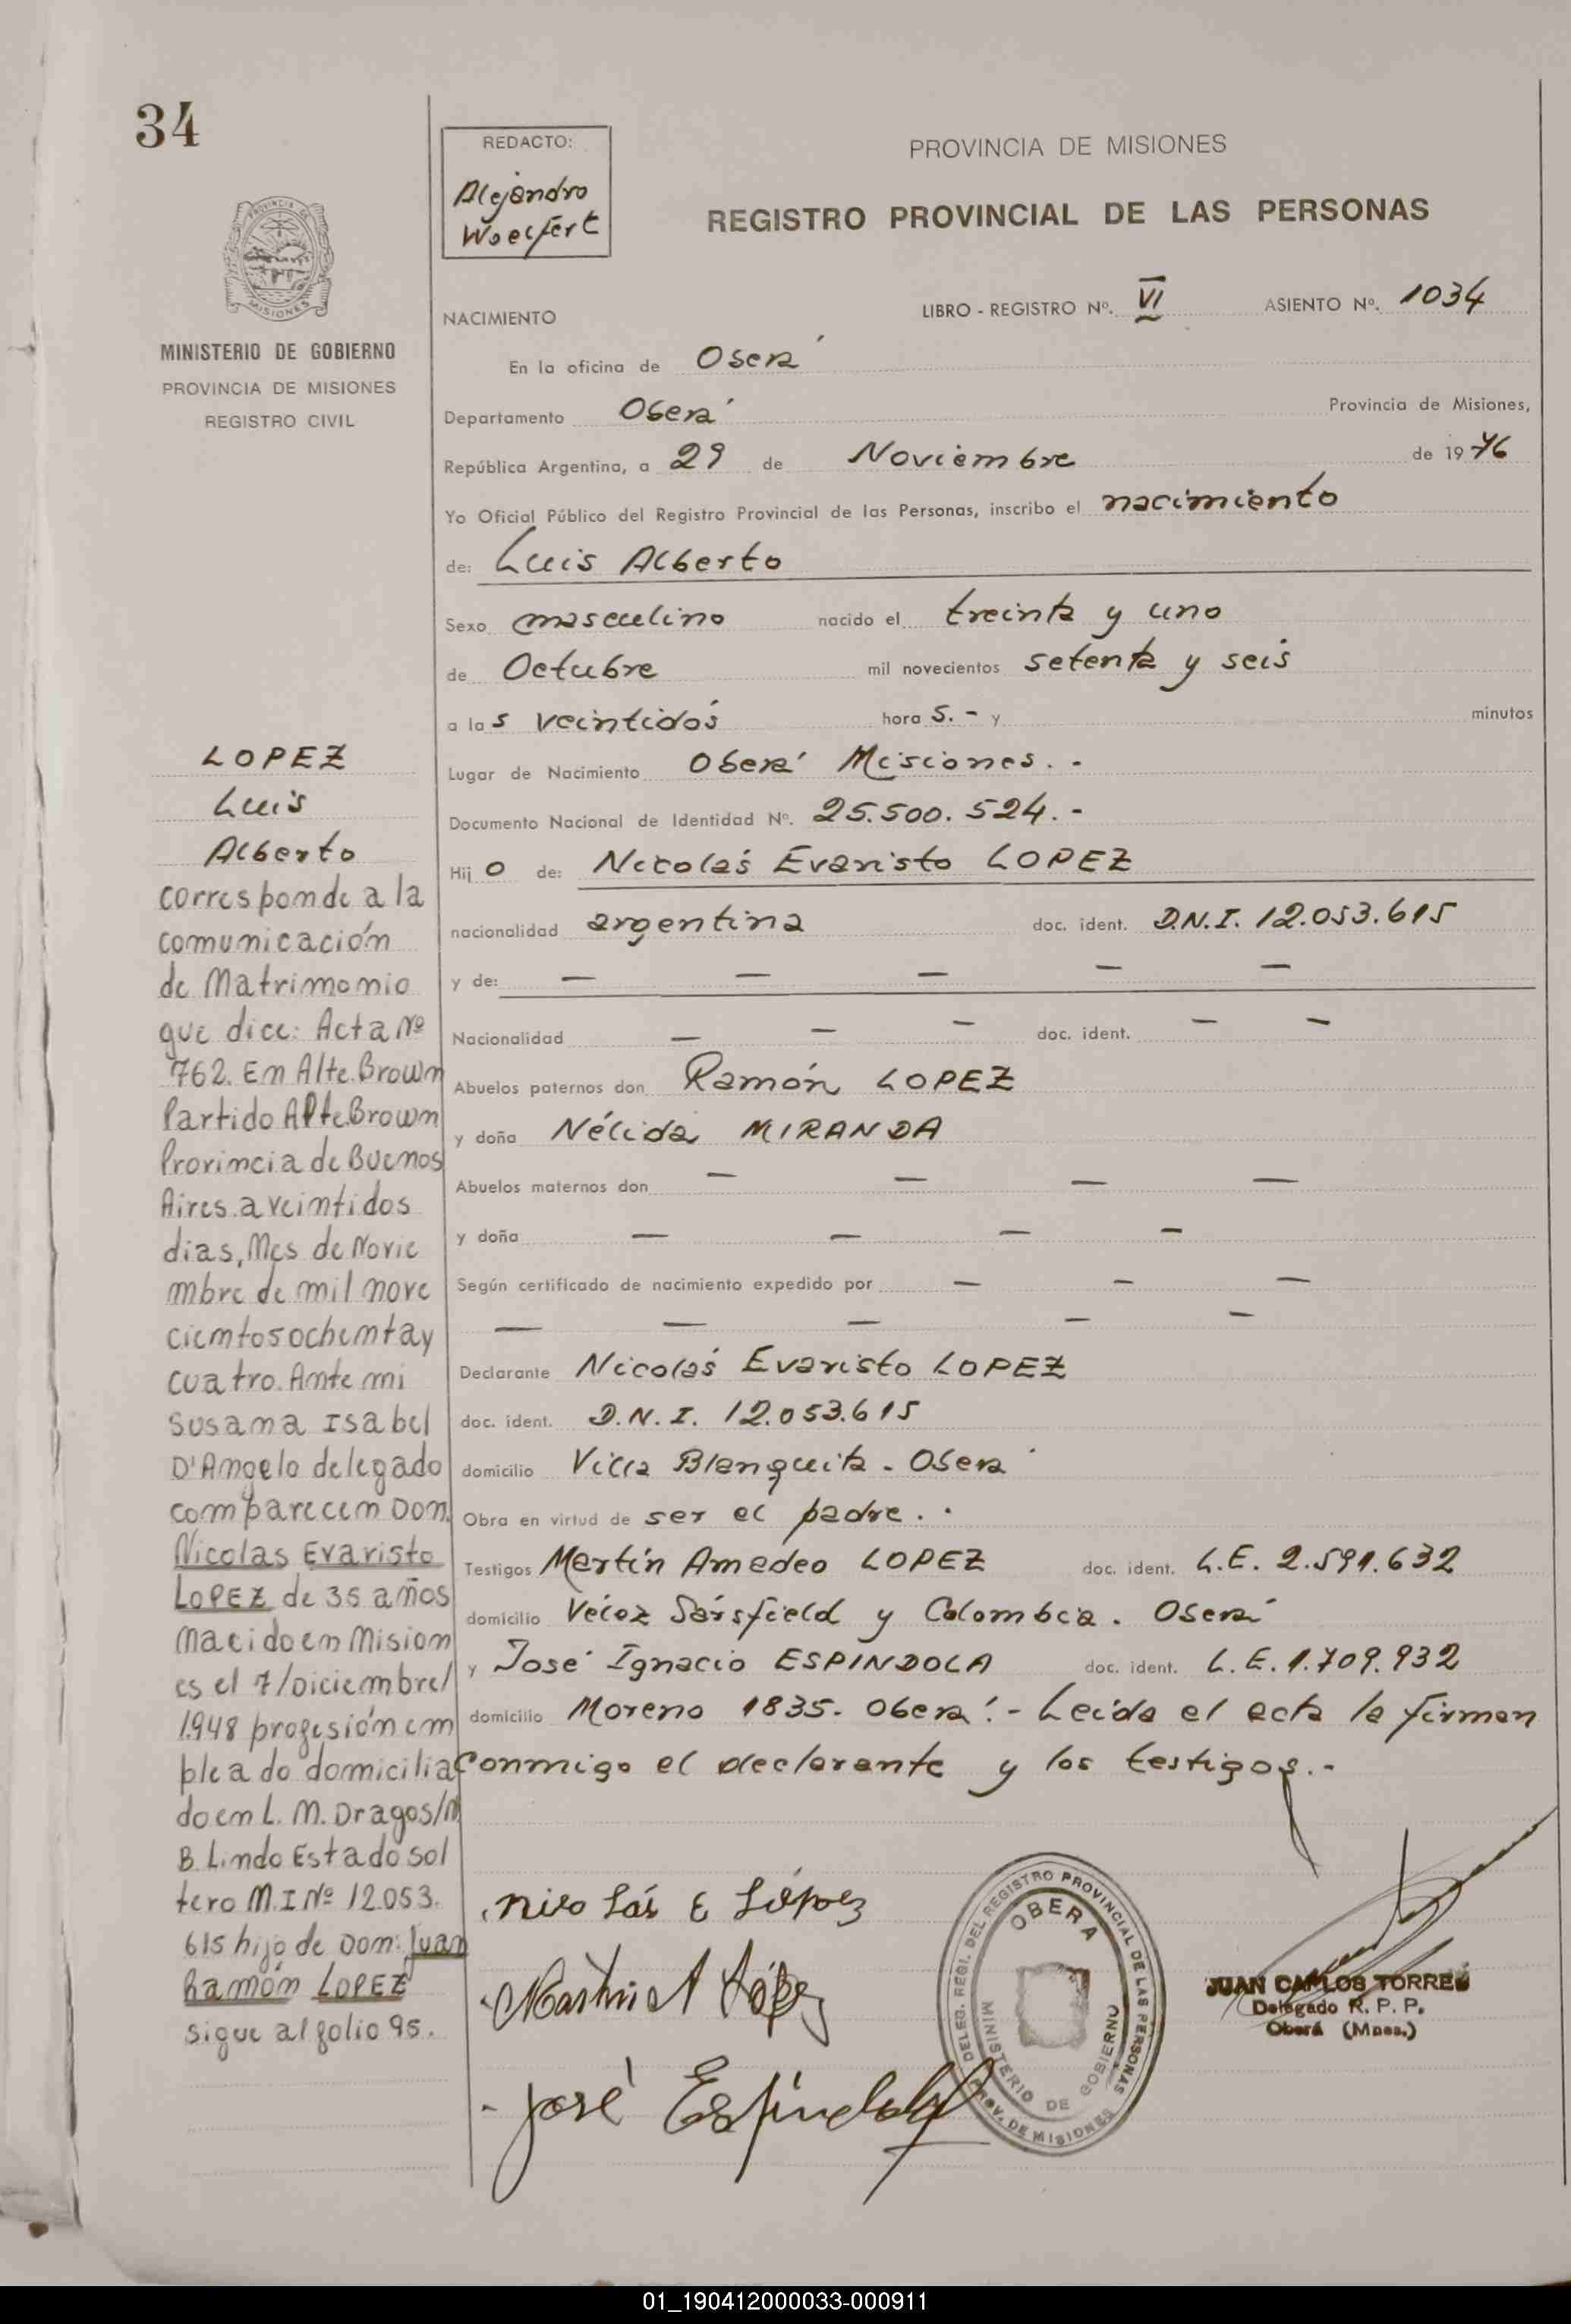 34
REDACTO:
Alejandro
Woelfert
PROVINCIA DE MISIONES
REGISTRO PROVINCIAL DE LAS PERSONAS
PROVINCIA DE
MISIONES
MINISTERIO DE GOBIERNO
PROVINCIA DE MISIONES
REGISTRO CIVIL
NACIMIENTO
LIBRO - REGISTRO Nº. VI ASIENTO Nº. 1034
En la oficina de Oberá
Departamento Oberá Provincia de Misiones,
República Argentina, a 29 de Noviembre de 1976
Yo Oficial Público del Registro Provincial de las Personas, inscribo el nacimiento
de: Luis Alberto
Sexo masculino nacido el treinta y uno
de Octubre mil novecientos setenta y seis
a las veintidós horas. - y minutos
Lugar de Nacimiento Oberá Misiones. -
Documento Nacional de Identidad Nº. 25.500.524. -
Hijo de: Nicolás Evaristo LOPEZ
nacionalidad argentina doc. ident. D.N.I. 12.053.615
y de: — — — — —
Nacionalidad — — — doc. ident. — —
Abuelos paternos don Ramón LOPEZ
y doña Nélida MIRANDA
Abuelos maternos don — — — —
y doña — — — —
Según certificado de nacimiento expedido por — — —
— — — — —
Declarante Nicolás Evaristo LOPEZ
doc. ident. D.N.I. 12.053.615
domicilio Villa Blanquita - Oberá
Obra en virtud de ser el padre. -
Testigos Martín Amedeo LOPEZ doc. ident. L.E. 2.591.632
domicilio Vélez Sársfield y Colombia. Oberá
y José Ignacio ESPINDOLA doc. ident. L.E. 1.709.932
domicilio Moreno 1835. Oberá. - Leída el acta la firman
conmigo el declarante y los testigos. -
LOPEZ
Luis
Alberto
corresponde a la
comunicación
de Matrimonio
que dice: Acta Nº
762. En Alte. Brown
Partido Alte. Brown
Provincia de Buenos
Aires. a veintidos
dias, Mes de Novie
mbre de mil nove
cientos ochenta y
cuatro. Ante mi
Susana Isabel
D'Angelo delegado
comparecen Don.
Nicolas Evaristo
LOPEZ de 35 años
nacido en Mision
es el 7/Diciembre/
1.948 profesión em
pleado domicilia
do en L. M. Drago s/N
B. Lindo Estado sol
tero M.I Nº 12.053.
615 hijo de Don: Juan
Ramón LOPEZ
sigue al folio 95.
Nicolás E López
Martin A López
José Espindola
DELEG. REGI. DEL REGISTRO PROVINCIAL DE LAS PERSONAS
OBERA
MINISTERIO DE GOBIERNO
PROV. DE MISIONES
JUAN CARLOS TORRES
Delegado R. P. P.
Oberá (Mnes.)
01_190412000033-000911